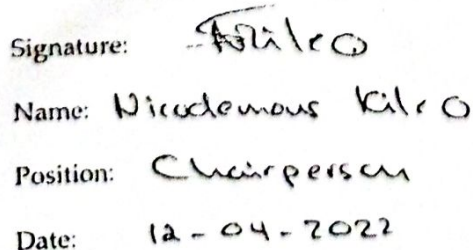 Signature:
Name: Nicodemous Kileo
Position: Chairperson
Date: 12-04-2022